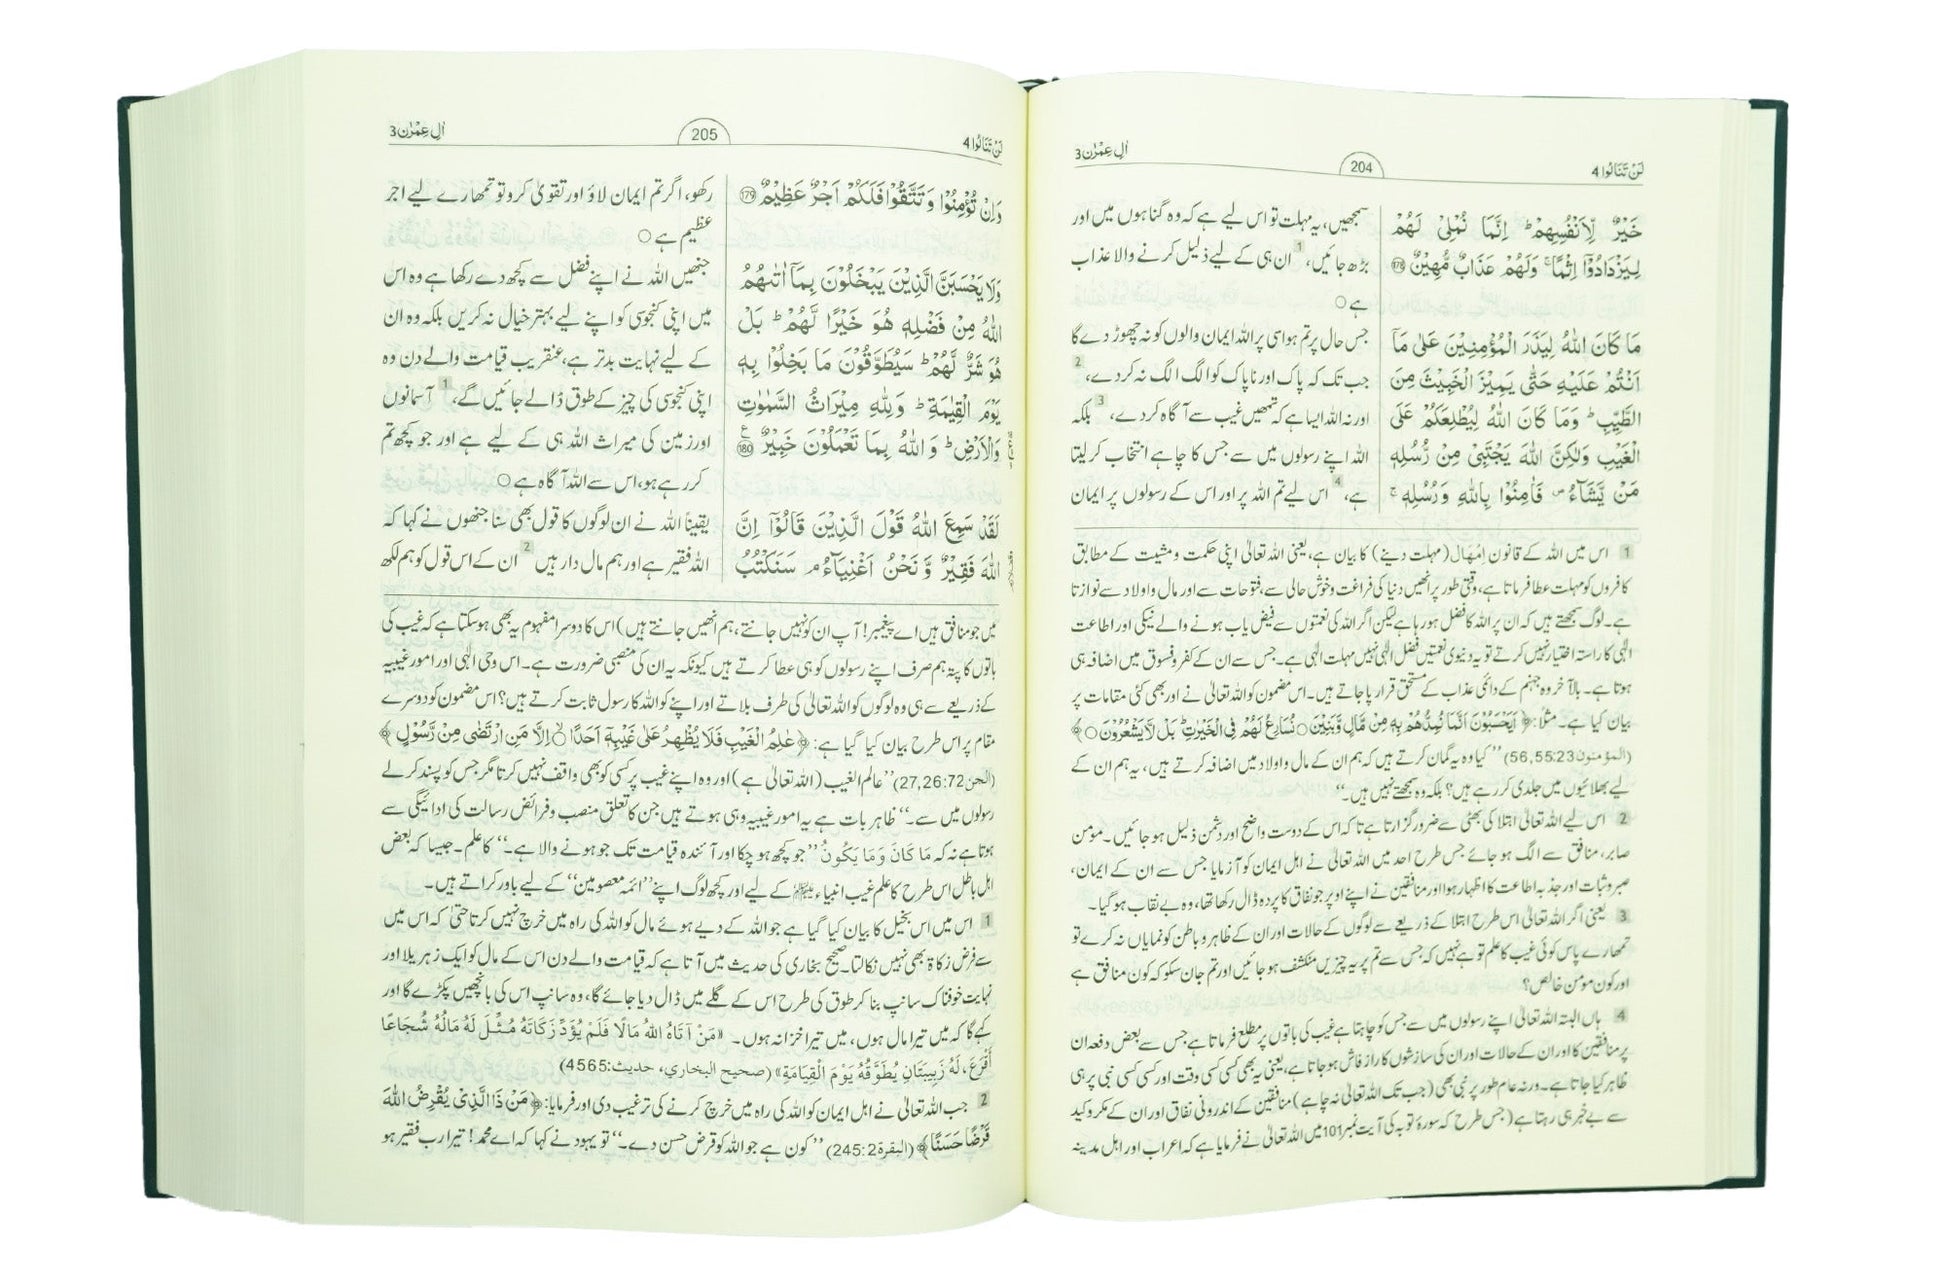 لَنْ تَنَالُوا 4
204
اٰلِ عِمْرٰن 3
خَيْرٌ لِّاَنْفُسِهِمْ ؕ اِنَّمَا نُمْلِيْ لَهُمْ
لِيَزْدَادُوْٓا اِثْمًا ۚ وَلَهُمْ عَذَابٌ مُّهِيْنٌ 178
مَا كَانَ اللّٰهُ لِيَذَرَ الْمُؤْمِنِيْنَ عَلٰى مَآ
اَنْتُمْ عَلَيْهِ حَتّٰى يَمِيْزَ الْخَبِيْثَ مِنَ
الطَّيِّبِ ؕ وَمَا كَانَ اللّٰهُ لِيُطْلِعَكُمْ عَلَى
الْغَيْبِ وَلٰكِنَّ اللّٰهَ يَجْتَبِيْ مِنْ رُّسُلِهٖ
مَنْ يَّشَآءُ ۪ فَاٰمِنُوْا بِاللّٰهِ وَرُسُلِهٖ ۚ
سمجھیں، یہ مہلت تو اس لیے ہے کہ وہ گناہوں میں اور
بڑھ جائیں، 1 ان ہی کے لیے ذلیل کرنے والا عذاب
ہے ○
جس حال پر تم ہو اسی پر اللہ ایمان والوں کو نہ چھوڑ دے گا
جب تک کہ پاک اور ناپاک کو الگ الگ نہ کر دے، 2
اور نہ اللہ ایسا ہے کہ تمھیں غیب سے آگاہ کر دے، 3 بلکہ
اللہ اپنے رسولوں میں سے جس کا چاہے انتخاب کر لیتا
ہے، 4 اس لیے تم اللہ پر اور اس کے رسولوں پر ایمان
1 اس میں اللہ کے قانون اِمْہَال (مہلت دینے) کا بیان ہے، یعنی اللہ تعالیٰ اپنی حکمت و مشیت کے مطابق
کافروں کو مہلت عطا فرماتا ہے، وقتی طور پر انھیں دنیا کی فراغت و خوش حالی سے، فتوحات سے اور مال و اولاد سے نوازتا
ہے۔ لوگ سمجھتے ہیں کہ ان پر اللہ کا فضل ہو رہا ہے لیکن اگر اللہ کی نعمتوں سے فیض یاب ہونے والے نیکی اور اطاعت
الٰہی کا راستہ اختیار نہیں کرتے تو یہ دنیوی نعمتیں فضل الٰہی نہیں مہلت الٰہی ہے۔ جس سے ان کے کفر و فسوق میں اضافہ ہی
ہوتا ہے۔ بالآخر وہ جہنم کے دائمی عذاب کے مستحق قرار پا جاتے ہیں۔ اس مضمون کو اللہ تعالیٰ نے اور بھی کئی مقامات پر
بیان کیا ہے۔ مثلاً: ﴿اَيَحْسَبُوْنَ اَنَّمَا نُمِدُّهُمْ بِهٖ مِنْ مَّالٍ وَّبَنِيْنَ ○ نُسَارِعُ لَهُمْ فِي الْخَيْرٰتِ ؕ بَلْ لَّا يَشْعُرُوْنَ ○﴾
(المؤمنون 56,55:23) ”کیا وہ یہ گمان کرتے ہیں کہ ہم ان کے مال و اولاد میں اضافہ کرتے ہیں، یہ ہم ان کے
لیے بھلائیوں میں جلدی کر رہے ہیں؟ بلکہ وہ سمجھتے نہیں ہیں۔“
2 اس لیے اللہ تعالیٰ ابتلا کی بھٹی سے ضرور گزارتا ہے تا کہ اس کے دوست واضح اور دشمن ذلیل ہو جائیں۔ مومن
صابر، منافق سے الگ ہو جائے جس طرح احد میں اللہ تعالیٰ نے اہل ایمان کو آزمایا جس سے ان کے ایمان،
صبر و ثبات اور جذبہ اطاعت کا اظہار ہوا اور منافقین نے اپنے اوپر جو نفاق کا پردہ ڈال رکھا تھا، وہ بے نقاب ہو گیا۔
3 یعنی اگر اللہ تعالیٰ اس طرح ابتلا کے ذریعے سے لوگوں کے حالات اور ان کے ظاہر و باطن کو نمایاں نہ کرے تو
تمھارے پاس کوئی غیب کا علم تو ہے نہیں کہ جس سے تم پر یہ چیزیں منکشف ہو جائیں اور تم جان سکو کہ کون منافق ہے
اور کون مومن خالص؟
4 ہاں البتہ اللہ تعالیٰ اپنے رسولوں میں سے جس کو چاہتا ہے غیب کی باتوں پر مطلع فرماتا ہے جس سے بعض دفعہ ان
پر منافقین کا اور ان کے حالات اور ان کی سازشوں کا راز فاش ہو جاتا ہے، یعنی یہ بھی کسی کسی وقت اور کسی کسی نبی پر ہی
ظاہر کیا جاتا ہے۔ ورنہ عام طور پر نبی بھی (جب تک اللہ تعالیٰ نہ چاہے) منافقین کے اندرونی نفاق اور ان کے مکر و کید
سے بے خبر ہی رہتا ہے (جس طرح کہ سورۂ توبہ کی آیت نمبر 101 میں اللہ تعالیٰ نے فرمایا ہے کہ اعراب اور اہل مدینہ
لَنْ تَنَالُوا 4
205
اٰلِ عِمْرٰن 3
وَاِنْ تُؤْمِنُوْا وَتَتَّقُوْا فَلَكُمْ اَجْرٌ عَظِيْمٌ 179
وَلَا يَحْسَبَنَّ الَّذِيْنَ يَبْخَلُوْنَ بِمَآ اٰتٰىهُمُ
اللّٰهُ مِنْ فَضْلِهٖ هُوَ خَيْرًا لَّهُمْ ؕ بَلْ
هُوَ شَرٌّ لَّهُمْ ؕ سَيُطَوَّقُوْنَ مَا بَخِلُوْا بِهٖ
يَوْمَ الْقِيٰمَةِ ؕ وَلِلّٰهِ مِيْرَاثُ السَّمٰوٰتِ
وَالْاَرْضِ ؕ وَاللّٰهُ بِمَا تَعْمَلُوْنَ خَبِيْرٌ 180
لَقَدْ سَمِعَ اللّٰهُ قَوْلَ الَّذِيْنَ قَالُوْٓا اِنَّ
اللّٰهَ فَقِيْرٌ وَّنَحْنُ اَغْنِيَآءُ ۘ سَنَكْتُبُ
رکھو، اگر تم ایمان لاؤ اور تقویٰ کرو تو تمھارے لیے اجر
عظیم ہے ○
جنھیں اللہ نے اپنے فضل سے کچھ دے رکھا ہے وہ اس
میں اپنی کنجوسی کو اپنے لیے بہتر خیال نہ کریں بلکہ وہ ان
کے لیے نہایت بدتر ہے، عنقریب قیامت والے دن وہ
اپنی کنجوسی کی چیز کے طوق ڈالے جائیں گے، 1 آسمانوں
اور زمین کی میراث اللہ ہی کے لیے ہے اور جو کچھ تم
کر رہے ہو، اس سے اللہ آگاہ ہے ○
یقیناً اللہ نے ان لوگوں کا قول بھی سنا جنھوں نے کہا کہ
اللہ فقیر ہے اور ہم مال دار ہیں 2 ان کے اس قول کو ہم لکھ
میں جو منافق ہیں اے پیغمبر! آپ ان کو نہیں جانتے، ہم انھیں جانتے ہیں) اس کا دوسرا مفہوم یہ بھی ہو سکتا ہے کہ غیب کی
باتوں کا پتہ ہم صرف اپنے رسولوں کو ہی عطا کرتے ہیں کیونکہ یہ ان کی منصبی ضرورت ہے۔ اس وحی الٰہی اور امور غیبیہ
کے ذریعے سے ہی وہ لوگوں کو اللہ تعالیٰ کی طرف بلاتے اور اپنے کو اللہ کا رسول ثابت کرتے ہیں؟ اس مضمون کو دوسرے
مقام پر اس طرح بیان کیا گیا ہے: ﴿عٰلِمُ الْغَيْبِ فَلَا يُظْهِرُ عَلٰى غَيْبِهٖٓ اَحَدًا ○ اِلَّا مَنِ ارْتَضٰى مِنْ رَّسُوْلٍ﴾
(الجن 27,26:72) ”عالم الغیب (اللہ تعالیٰ ہے) اور وہ اپنے غیب پر کسی کو بھی واقف نہیں کرتا مگر جس کو پسند کر لے
رسولوں میں سے۔“ ظاہر بات ہے یہ امور غیبیہ وہی ہوتے ہیں جن کا تعلق منصب و فرائض رسالت کی ادائیگی سے
ہوتا ہے نہ کہ مَا كَانَ وَمَا يَكُونُ ”جو کچھ ہو چکا اور آئندہ قیامت تک جو ہونے والا ہے۔“ کا علم۔ جیسا کہ بعض
اہل باطل اس طرح کا علم غیب انبیاء کے لیے اور کچھ لوگ اپنے ”ائمہ معصومین“ کے لیے باور کراتے ہیں۔
1 اس میں اس بخیل کا بیان کیا گیا ہے جو اللہ کے دیے ہوئے مال کو اللہ کی راہ میں خرچ نہیں کرتا حتیٰ کہ اس میں
سے فرض زکاۃ بھی نہیں نکالتا۔ صحیح بخاری کی حدیث میں آتا ہے کہ قیامت والے دن اس کے مال کو ایک زہریلا اور
نہایت خوفناک سانپ بنا کر طوق کی طرح اس کے گلے میں ڈال دیا جائے گا، وہ سانپ اس کی بانچھیں پکڑے گا اور
کہے گا کہ میں تیرا مال ہوں، میں تیرا خزانہ ہوں۔ «مَنْ آتَاهُ اللهُ مَالًا فَلَمْ يُؤَدِّ زَكَاتَهُ مُثِّلَ لَهُ مَالُهُ شُجَاعًا
أَقْرَعَ، لَهُ زَبِيبَتَانِ يُطَوَّقُهُ يَوْمَ الْقِيَامَةِ» (صحيح البخاري، حديث: 4565)
2 جب اللہ تعالیٰ نے اہل ایمان کو اللہ کی راہ میں خرچ کرنے کی ترغیب دی اور فرمایا: ﴿مَنْ ذَا الَّذِيْ يُقْرِضُ اللّٰهَ
قَرْضًا حَسَنًا﴾ (البقرة 245:2) ”کون ہے جو اللہ کو قرض حسن دے۔“ تو یہود نے کہا کہ اے محمد! تیرا رب فقیر ہو